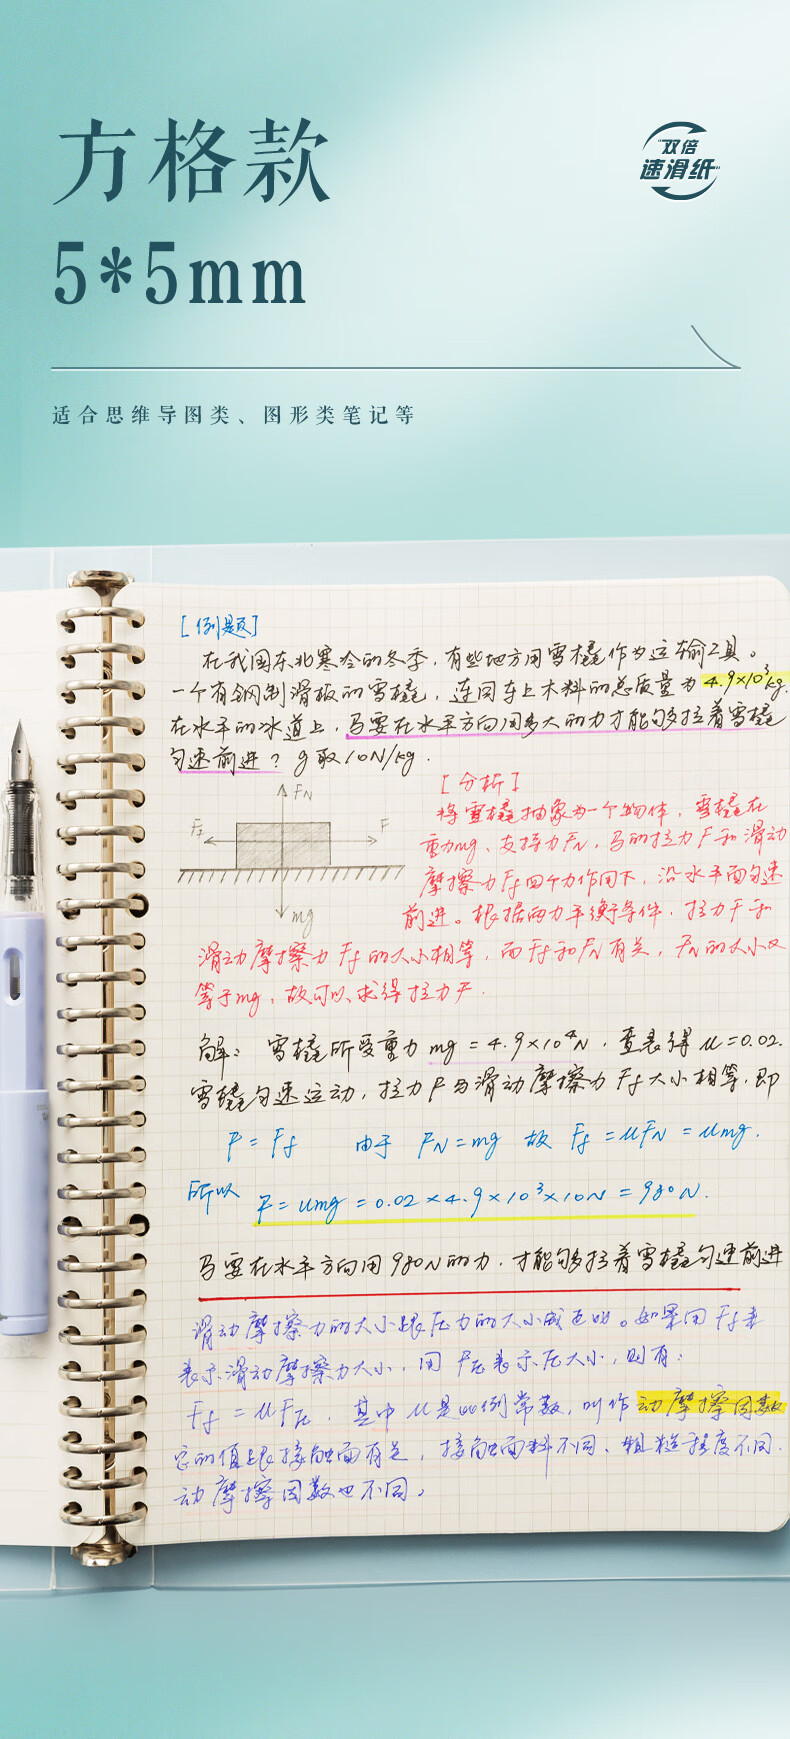 方格款
双倍
速滑纸
5*5mm
适合思维导图类、图形类笔记等
[例题]
在我国东北寒冷的冬季，有些地方用雪橇作为运输工具。
一个有钢制滑板的雪橇，连同车上木料的总质量为4.9×10³kg.
在水平的冰道上，马要在水平方向用多大的力才能够拉着雪橇
匀速前进？g取10N/kg.
[分析]
将雪橇抽象为一个物体，雪橇在
重力mg、支持力FN，马的拉力F和滑动
摩擦力Ff四个力作用下，沿水平面匀速
前进。根据两力平衡条件，拉力F和
滑动摩擦力Ff的大小相等，而Ff和FN有关，FN的大小又
等于mg，故可以求得拉力F.
FN
Ff
F
mg
解：雪橇所受重力mg=4.9×10⁴N，查表得μ=0.02.
雪橇匀速运动，拉力F与滑动摩擦力Ff大小相等，即
F=Ff 由于 FN=mg 故 Ff=μFN=μmg.
所以 F=μmg=0.02×4.9×10³×10N=980N.
马要在水平方向用980N的力，才能够拉着雪橇匀速前进
滑动摩擦力的大小跟压力的大小成正比。如果用Ff来
表示滑动摩擦力大小，用F压表示压大小，则有：
Ff=μF压，其中μ是比例常数，叫作动摩擦因数
它的值跟接触面有关，接触面料不同、粗糙程度不同.
动摩擦因数也不同。